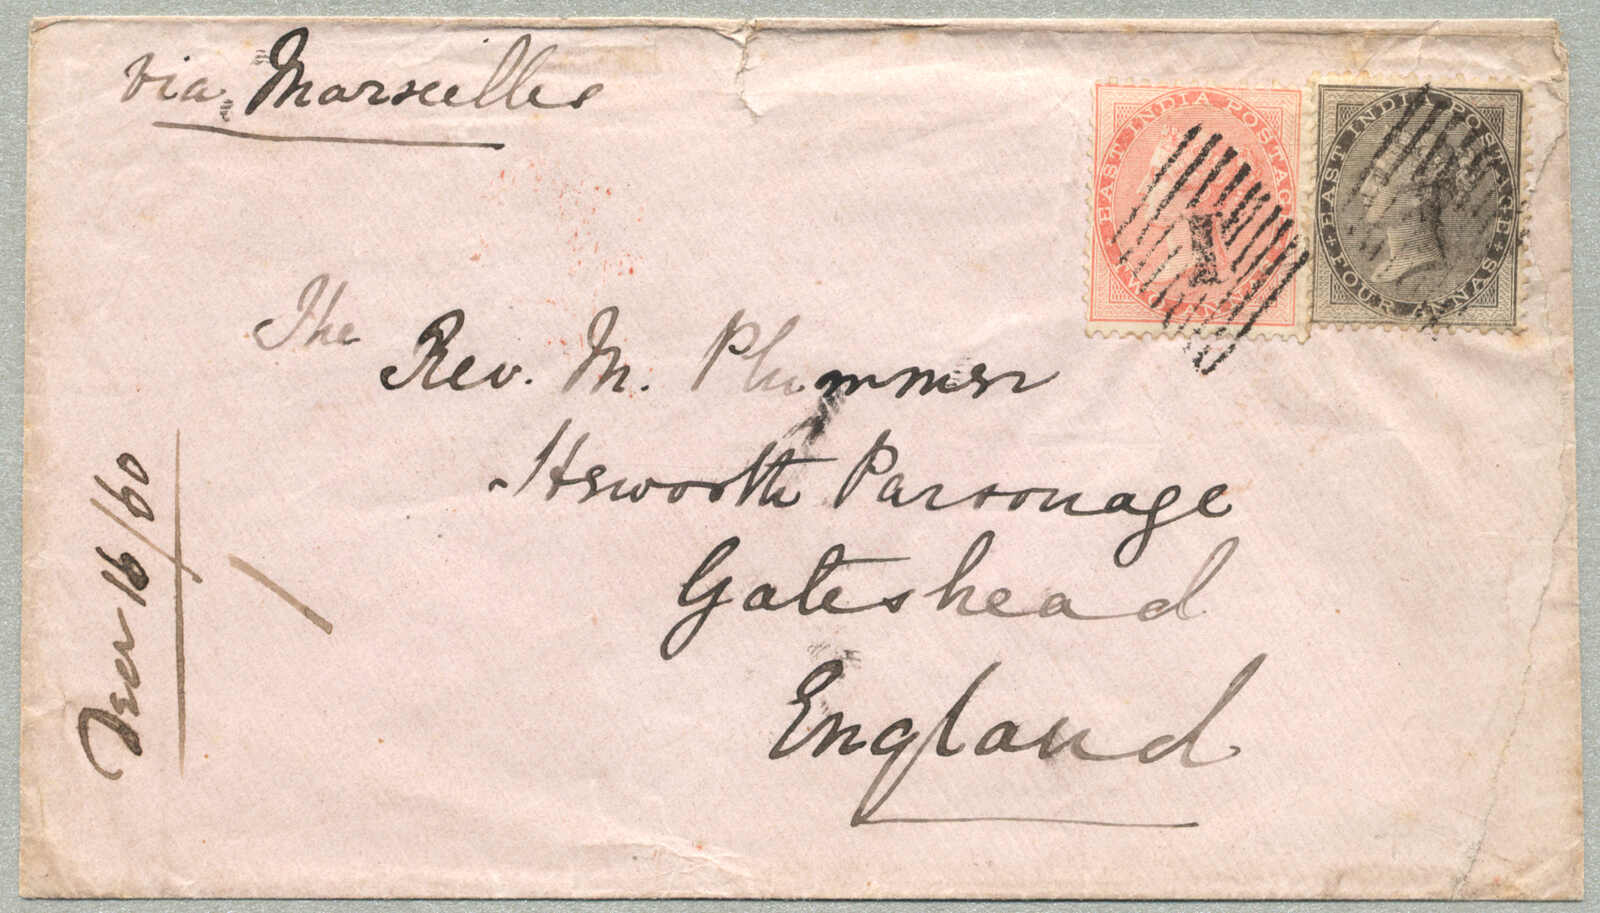 via Marseilles
EAST INDIA POSTAGE
TWO ANNAS
EAST INDIA POSTAGE
FOUR ANNAS
1
The
Rev. M. Plummer
Heworth Parsonage
Gateshead
England
Decr 16/60